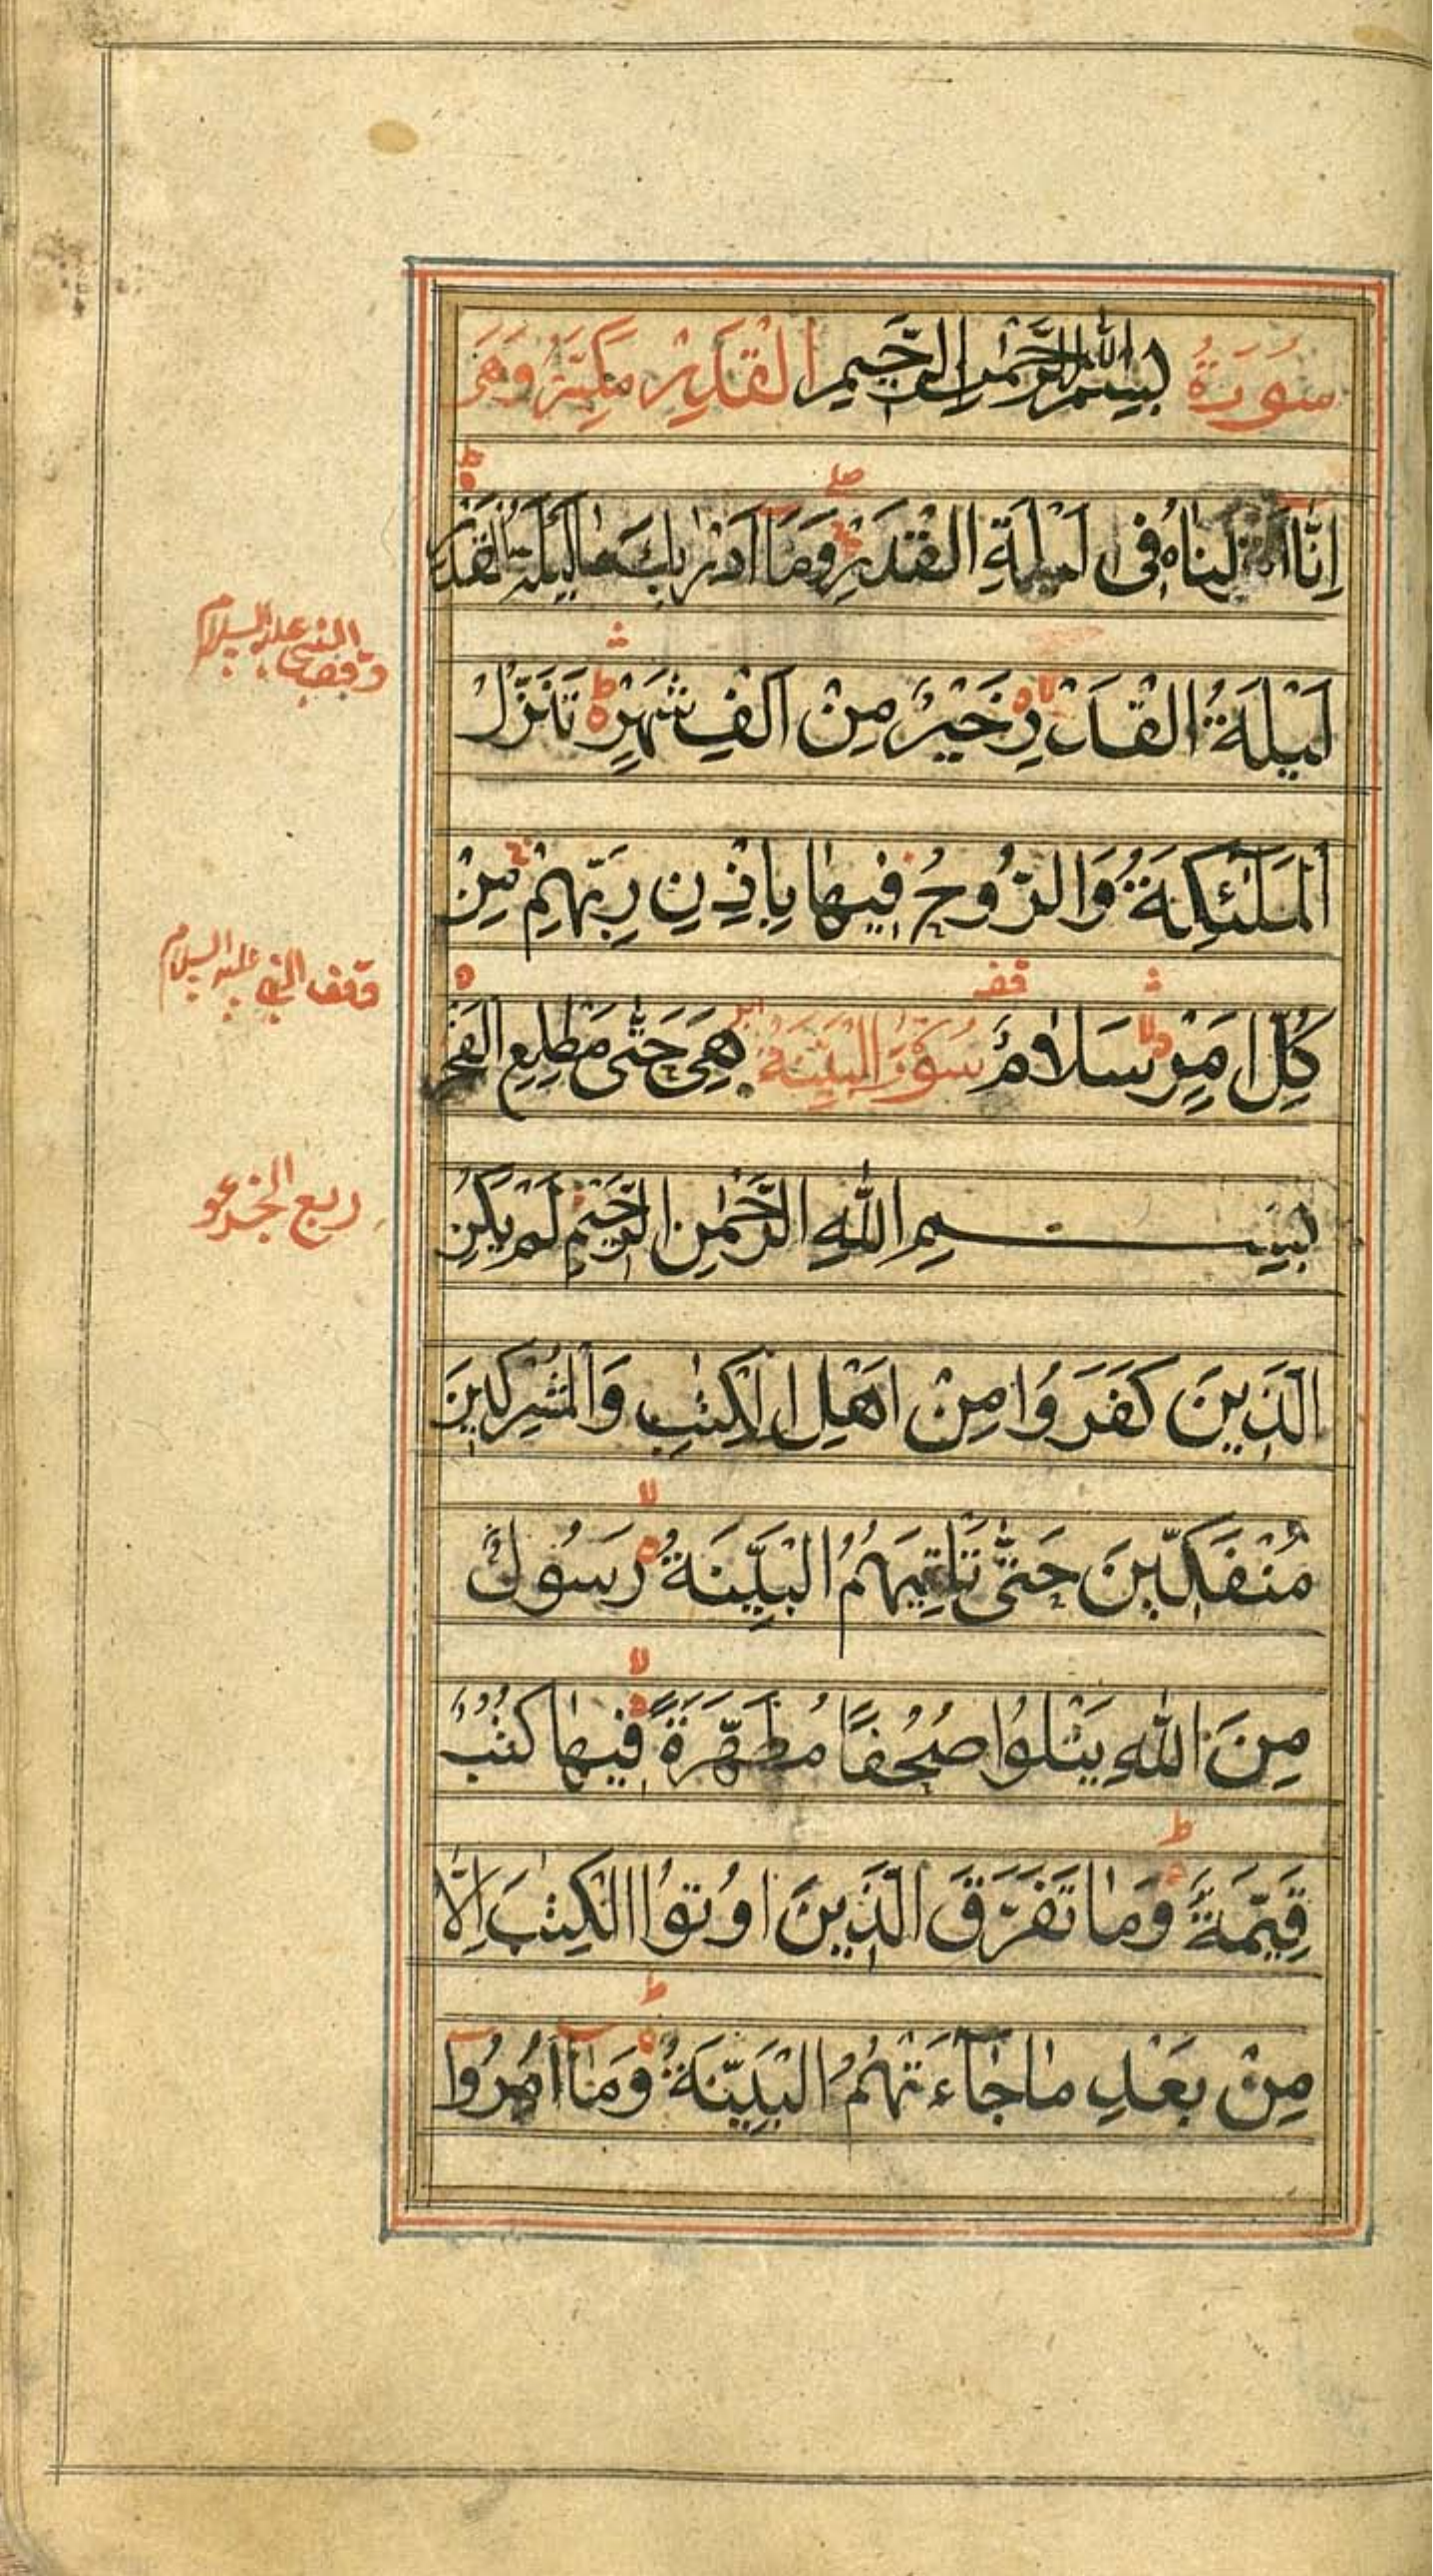 سُورَةُ بِسْمِ اللهِ الرَّحْمٰنِ الرَّحِيمِ القَدْرِ مَكِيَّة وَهِيَ
اِنَّا اَنْزَلْنَاهُ فِى لَيْلَةِ القَدْرِ وَمَا اَدْرٰىكَ مَا لَيْلَةُ القَدْرِ
لَيْلَةُ القَدْرِ خَيْرٌ مِنْ اَلْفِ شَهْرٍ تَنَزَّلُ
المَلٰئِكَةُ وَالرُّوحُ فِيهٰا بِاِذْنِ رَبِّهِمْ مِنْ
كُلِّ اَمْرٍ سَلاٰمٌ سُورَةُ البَيِّنَة هِىَ حَتّٰى مَطْلَعِ الفَجْرِ
بِسْمِ اللهِ الرَّحْمٰنِ الرَّحِيمِ لَمْ يَكُنِ
الَّذِينَ كَفَرُوا مِنْ اَهْلِ الْكِتٰبِ وَالْمُشْرِكِينَ
مُنْفَكِّينَ حَتّٰى تَاْتِيَهُمُ البَيِّنَةُ رَسُولٌ
مِنَ اللهِ يَتْلُوا صُحُفًا مُطَهَّرَةً فِيهٰا كُتُبٌ
قَيِّمَةٌ وَمٰا تَفَرَّقَ الَّذِينَ اُوتُوا الْكِتٰبَ اِلَّا
مِنْ بَعْدِ مٰا جٰاءَتْهُمُ البَيِّنَةُ وَمٰا اُمِرُوا
النبي عليه السلام
وقف النبي عليه السلام
ربع